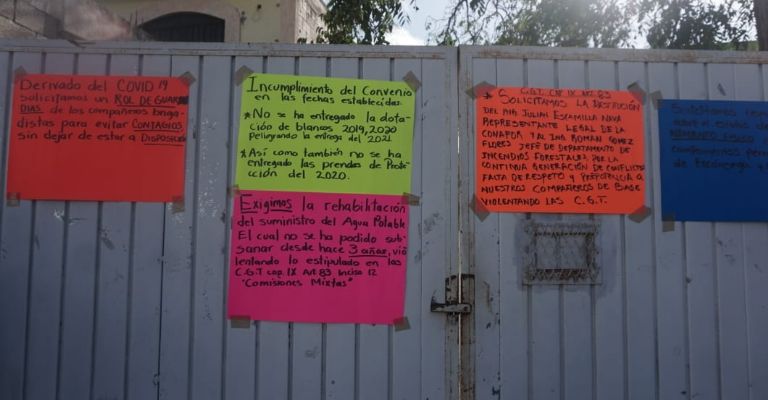 Derivado del COVID 19
solicitamos un ROL DE GUAR
DIAS de los compañeros briga-
distas para evitar CONTAGIOS
sin dejar de estar a DISPOSICIÓN
Incumplimiento del Convenio
en las fechas establecidas.
* No se ha entregado la dota-
ción de blancos 2019, 2020
Peligrando la entrega del 2021
* Así como también no se ha
entregado las prendas de Prote-
cción del 2020.
Exigimos la rehabilitación
del suministro del Agua Potable
El cual no se ha podido sub-
sanar desde hace 3 años, vio
lentando lo estipulado en las
C.G.T cap. IX Art. 83 Inciso 12
"Comisiones Mixtas"
* C.G.T. CAP. IX ART. 83
SOLICITAMOS LA DESTITUCIÓN
DEL ING JULIAN ESCAMILLA NAVA
REPRESENTANTE LEGAL DE LA
CONAFOR Y AL ING. ROMAN GOMEZ
FLORES JEFE DE DEPARTAMENTO DE
INCENDIOS FORESTALES, POR LA
CONTINUA GENERACIÓN DE CONFLICTO
FALTA DE RESPETO Y PREPOTENCIA A
NUESTROS COMPAÑEROS DE BASE
VIOLENTANDO LAS C.G.T.